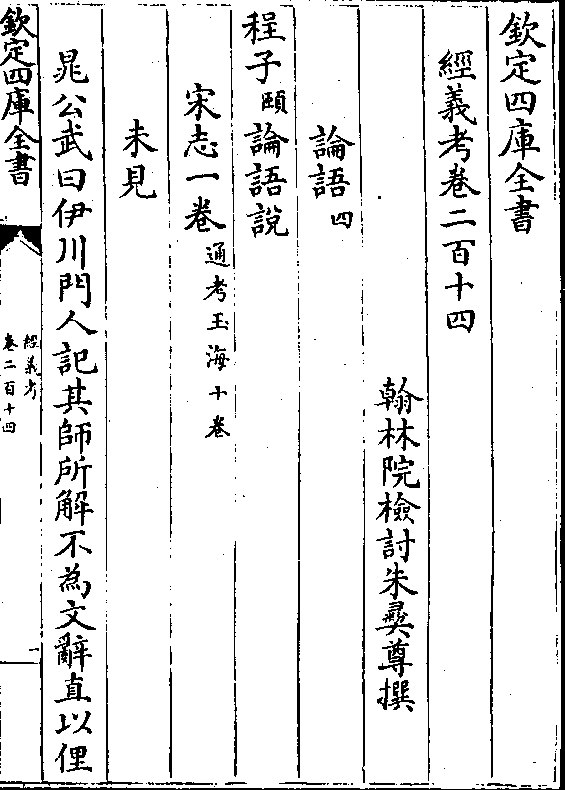 欽定四庫全書
經義考卷二百十四
翰林院檢討朱彝尊撰
論語四
程子頤論語說
宋志一卷通考玉海十卷
未見
晁公武曰伊川門人記其師所解不為文辭直以俚
欽定四庫全書
經義考
卷二百十四
一